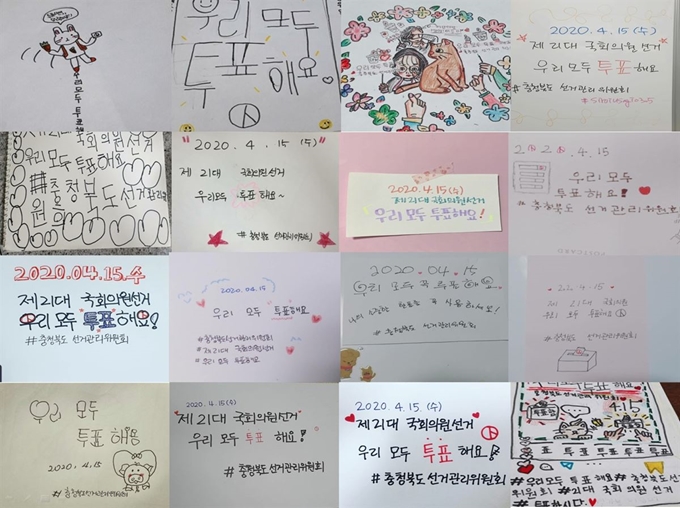 우리 모두 투표해
우리 모두
투표
해요
2020. 4. 15 (수)
제 21대 국회의원 선거
우리 모두 투표 해요
#충청북도 선거관리 위원회
국회의원선거
우리모두 투표해요
#충청북도선거관리
원회
2020. 4. 15 (수)
제 21대 국회의원선거
우리모두 투표해요~
#충청북도 선거관리위원회
2020.4.15(수)
제21대 국회의원선거
우리모두 투표해요!
2020.4.15
우리 모두
투표해요!
#충청북도 선거관리위원회
2020.04.15.수
제21대 국회의원선거
우리 모두 투표해요!
#충청북도 선거관리위원회
2020.04.15
우리 모두 투표해요
#충청북도선거관리위원회
#제21대 국회의원선거
#우리 모두 투표해요
2020.04.15
우리 모두 꼭 투표해요
#충청북도 선거관리위원회
2020.4.15
제 21대 국회의원
우리 모두 투표해요!
#충청북도 선거관리위원회
우리 모두
투표 해용
2020. 4. 15
#충청북도선거관리위원회
2020. 4.15(수)
제21대 국회의원선거
우리 모두 투표 해요!
#충청북도선거관리위원회
2020. 4.15.(수)
제21대 국회의원선거
우리 모두 투표 해요!
#충청북도선거관리위원회
우리 모두 투표 해요
4.15
#우리모두 투표해요#충청북도선
위원회 #21대 국회 의원 선거
#투표합시다